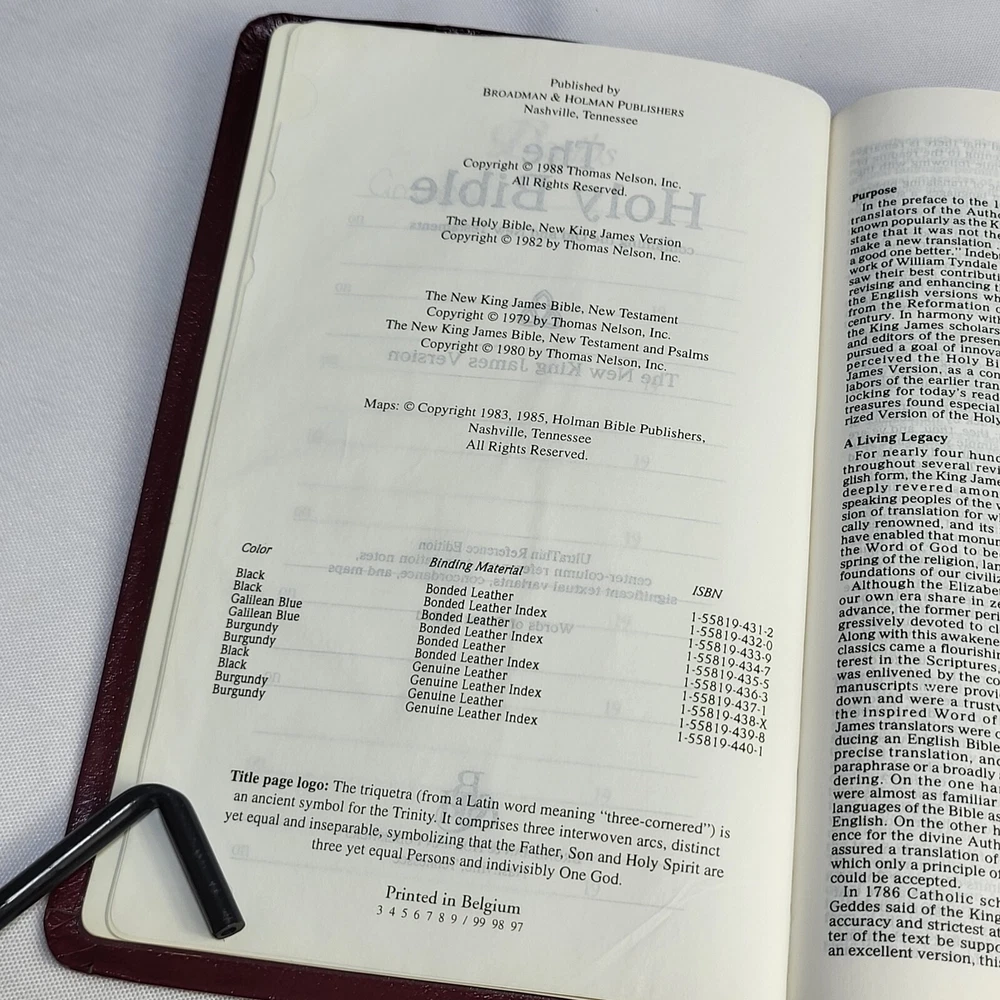 Published by
BROADMAN & HOLMAN PUBLISHERS
Nashville, Tennessee
Copyright © 1988 Thomas Nelson, Inc.
All Rights Reserved.
The Holy Bible, New King James Version
Copyright © 1982 by Thomas Nelson, Inc.
The New King James Bible, New Testament
Copyright © 1979 by Thomas Nelson, Inc.
The New King James Bible, New Testament and Psalms
Copyright © 1980 by Thomas Nelson, Inc.
Maps: © Copyright 1983, 1985, Holman Bible Publishers,
Nashville, Tennessee
All Rights Reserved.
Color Binding Material ISBN
Black Bonded Leather 1-55819-431-2
Black Bonded Leather Index 1-55819-432-0
Galilean Blue Bonded Leather 1-55819-433-9
Galilean Blue Bonded Leather Index 1-55819-434-7
Burgundy Bonded Leather 1-55819-435-5
Burgundy Bonded Leather Index 1-55819-436-3
Black Genuine Leather 1-55819-437-1
Black Genuine Leather Index 1-55819-438-X
Burgundy Genuine Leather 1-55819-439-8
Burgundy Genuine Leather Index 1-55819-440-1
Title page logo: The triquetra (from a Latin word meaning "three-cornered") is
an ancient symbol for the Trinity. It comprises three interwoven arcs, distinct
yet equal and inseparable, symbolizing that the Father, Son and Holy Spirit are
three yet equal Persons and indivisibly One God.
Printed in Belgium
3 4 5 6 7 8 9 / 99 98 97
Purpose
In the preface to the
translators of the
known popularly as the
state that it was not the
make a new translation
a good one better."
work of William Tyndale
saw their best
revising and enhancing
the English versions
from the Reformation
century. In harmony with
the King James
and editors of the
pursued a goal of
perceived the Holy
James Version, as a
labors of the earlier
locking for today's
treasures found
rized Version of the
A Living Legacy
For nearly four
throughout several
glish form, the King
deeply revered
speaking peoples of the
sion of translation for
cally renowned, and its
have enabled that
the Word of God to
spring of the religion,
foundations of our
Although the
our own era share in
advance, the former
gressively devoted to
Along with this
classics came a
terest in the Scriptures,
was enlivened by the
manuscripts were
down and were a
the inspired Word of
James translators were
ducing an English Bible
precise translation, and
paraphrase or a broadly
dering. On the one
were almost as familiar
languages of the Bible as
English. On the other
ence for the divine
assured a translation of
which only a principle of
could be accepted.
In 1786 Catholic
Geddes said of the
accuracy and strictest
ter of the text be
an excellent version,